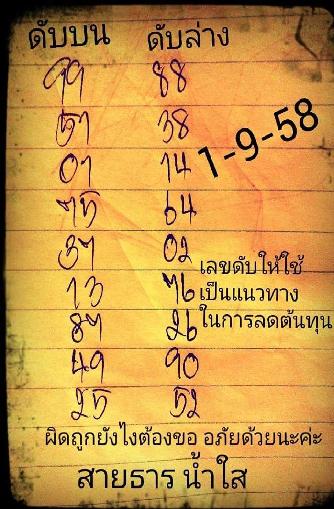 ดับบน ดับล่าง
99 88
38
01 14
1-9-58
75 64
37 02
เลขดับให้ใช้
13 76
เป็นแนวทาง
87 26
ในการลดต้นทุน
49 90
25 52
ผิดถูกยังไงต้องขอ อภัยด้วยนะค่ะ
สายธาร น้ำใส